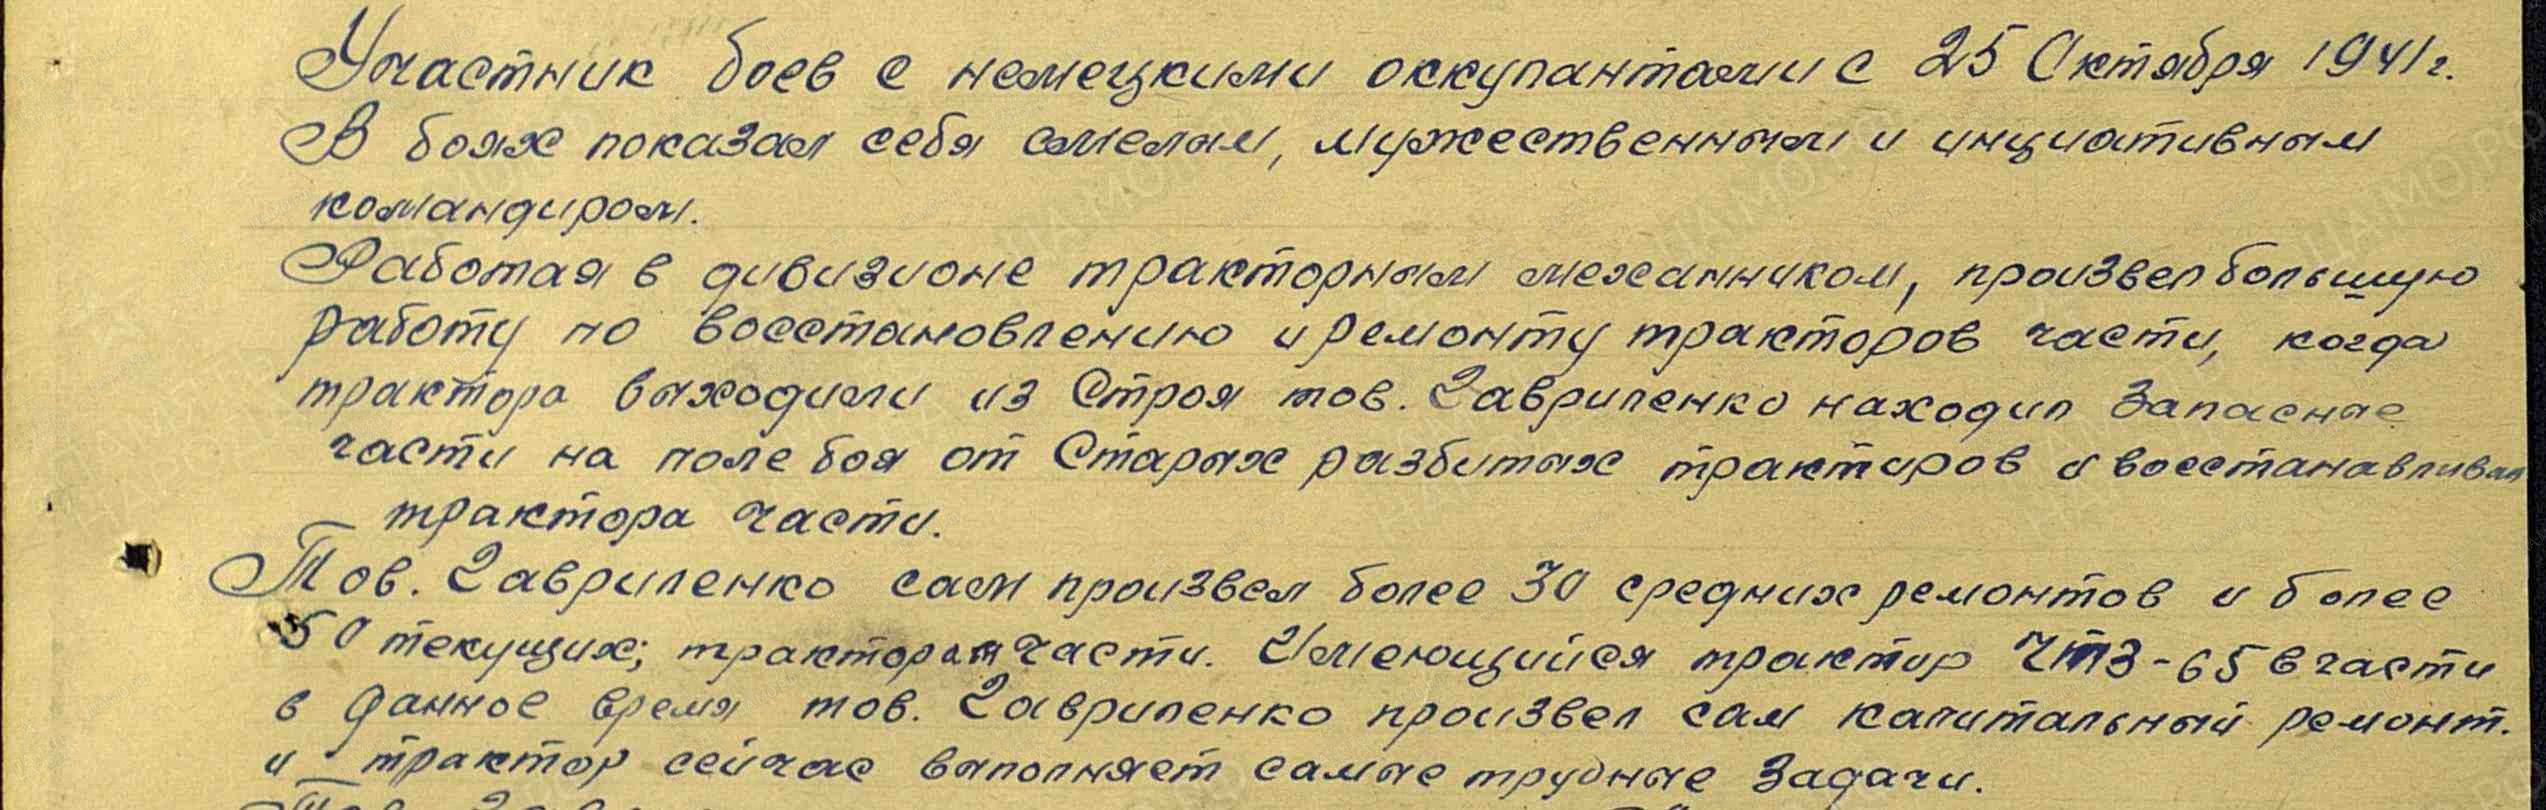 Участник боев с немецкими оккупантами с 25 Октября 1941 г.
В боях показал себя смелым, мужественным и инциативным
командиром.
Работая в дивизионе тракторным механником, произвел большую
работу по восстановлению и ремонту тракторов части, когда
трактора выходили из Строя тов. Гавриленко находил Запасные
части на поле боя от Старых разбитых тракторов и восстанавливал
трактора части.
Тов. Гавриленко сам произвел более 30 средних ремонтов и более
50 текущих; тракторам части. Имеющийся трактор ЧТЗ-65 в части
в данное время тов. Гавриленко произвел сам капитальный ремонт.
и трактор сейчас выполняет самые трудные Задачи.